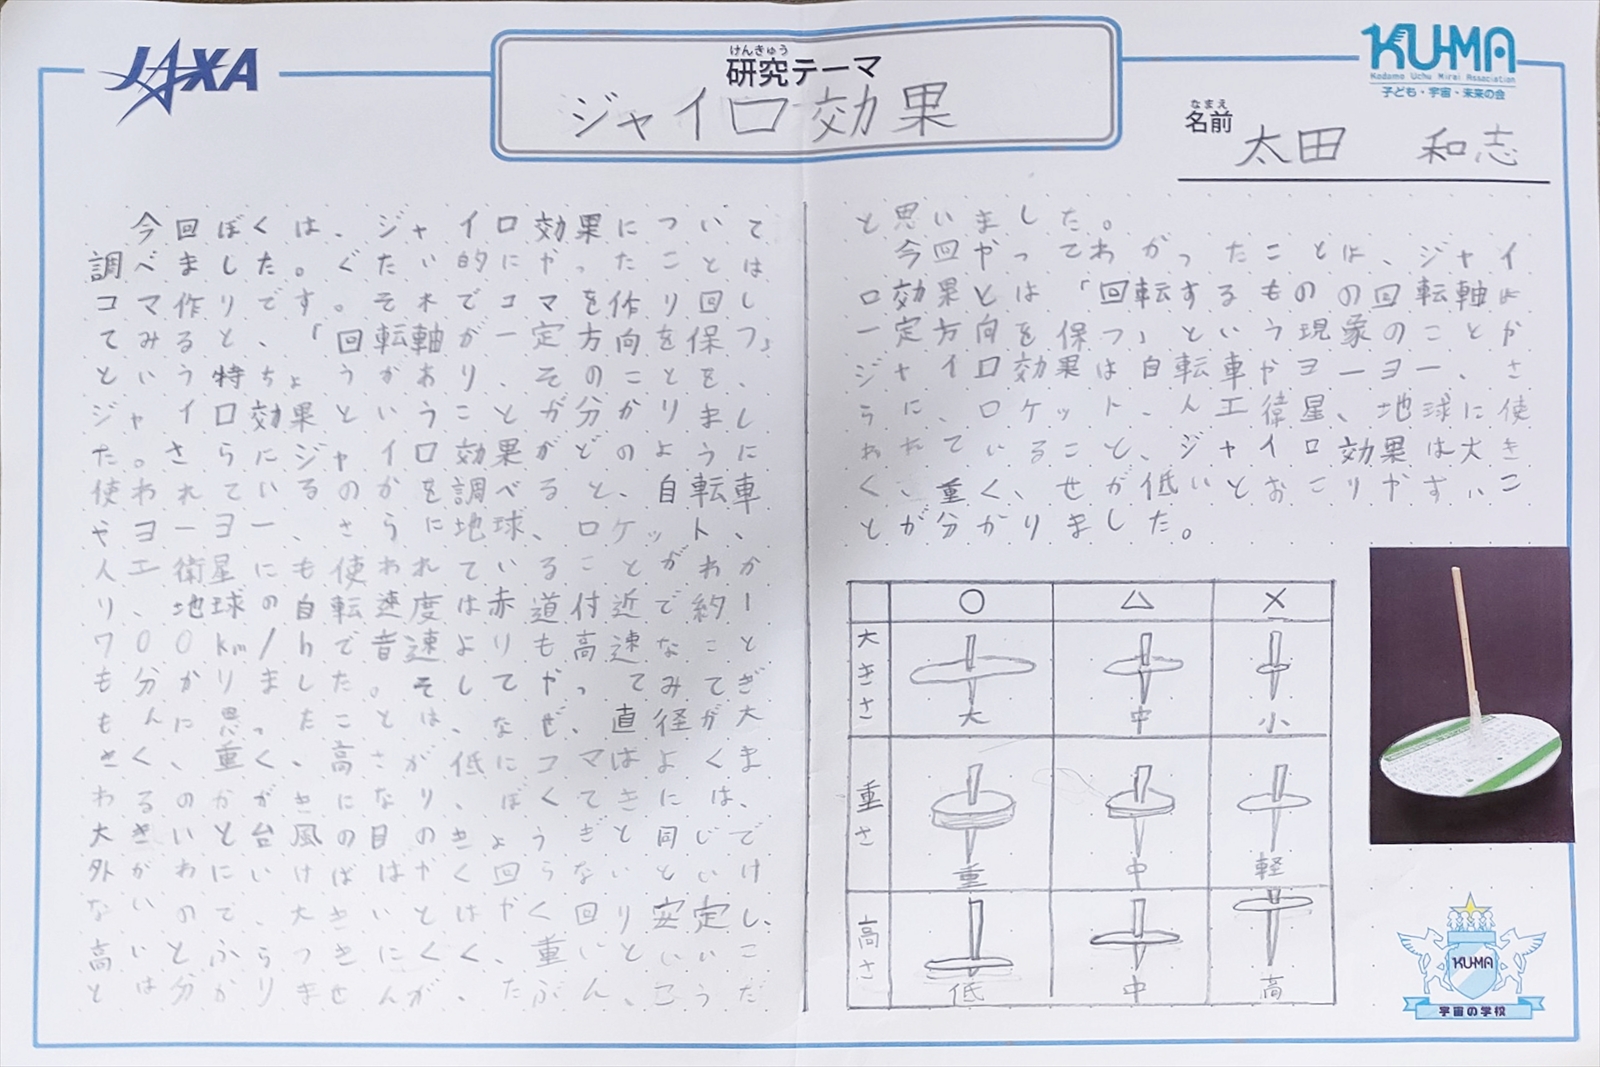 JAXA
けんきゅう
研究テーマ
ジャイロ効果
KUMA
Kodomo Uchu Mirai Association
子ども・宇宙・未来の会
なまえ
名前
太田 和志
今回ぼくは、ジャイロ効果について
調べました。ぐたい的にやったことは
コマ作りです。それでコマを作り回し
てみると、「回転軸が一定方向を保つ」
という特ちょうがあり、そのことを、
ジャイロ効果ということが分かりまし
た。さらにジャイロ効果がどのように
使われているのかを調べると、自転車
やヨーヨー、さらに地球、ロケット、
人工衛星にも使われていることがわか
り、地球の自転速度は赤道付近で約1
700km/hで音速よりも高速なこと
も分かりました。そしてやってみてぎ
もんに思ったことは、なぜ、直径が大
きく、重く、高さが低にコマはよくま
わるのかがきになり、ぼくてきには、
大きいと台風の目のきょうぎと同じで
外がわにいけばはやく回らないといけ
ないので、大きいとはやく回り安定し、
高いとふらつきにくく、重いといいこ
とは分かりませんが、たぶん、こうだ
と思いました。
今回やってわかったことは、ジャイ
ロ効果とは「回転するものの回転軸は
一定方向を保つ」という現象のことか
ジャイロ効果は自転車やヨーヨー、さ
らに、ロケット、人工衛星、地球に使
われていること、ジャイロ効果は大き
く、重く、せが低いとおこりやすいこ
とが分かりました。
○ △ ×
大きさ
大 中 小
重さ
重 中 軽
高さ
低 中 高
KUMA
宇宙の学校